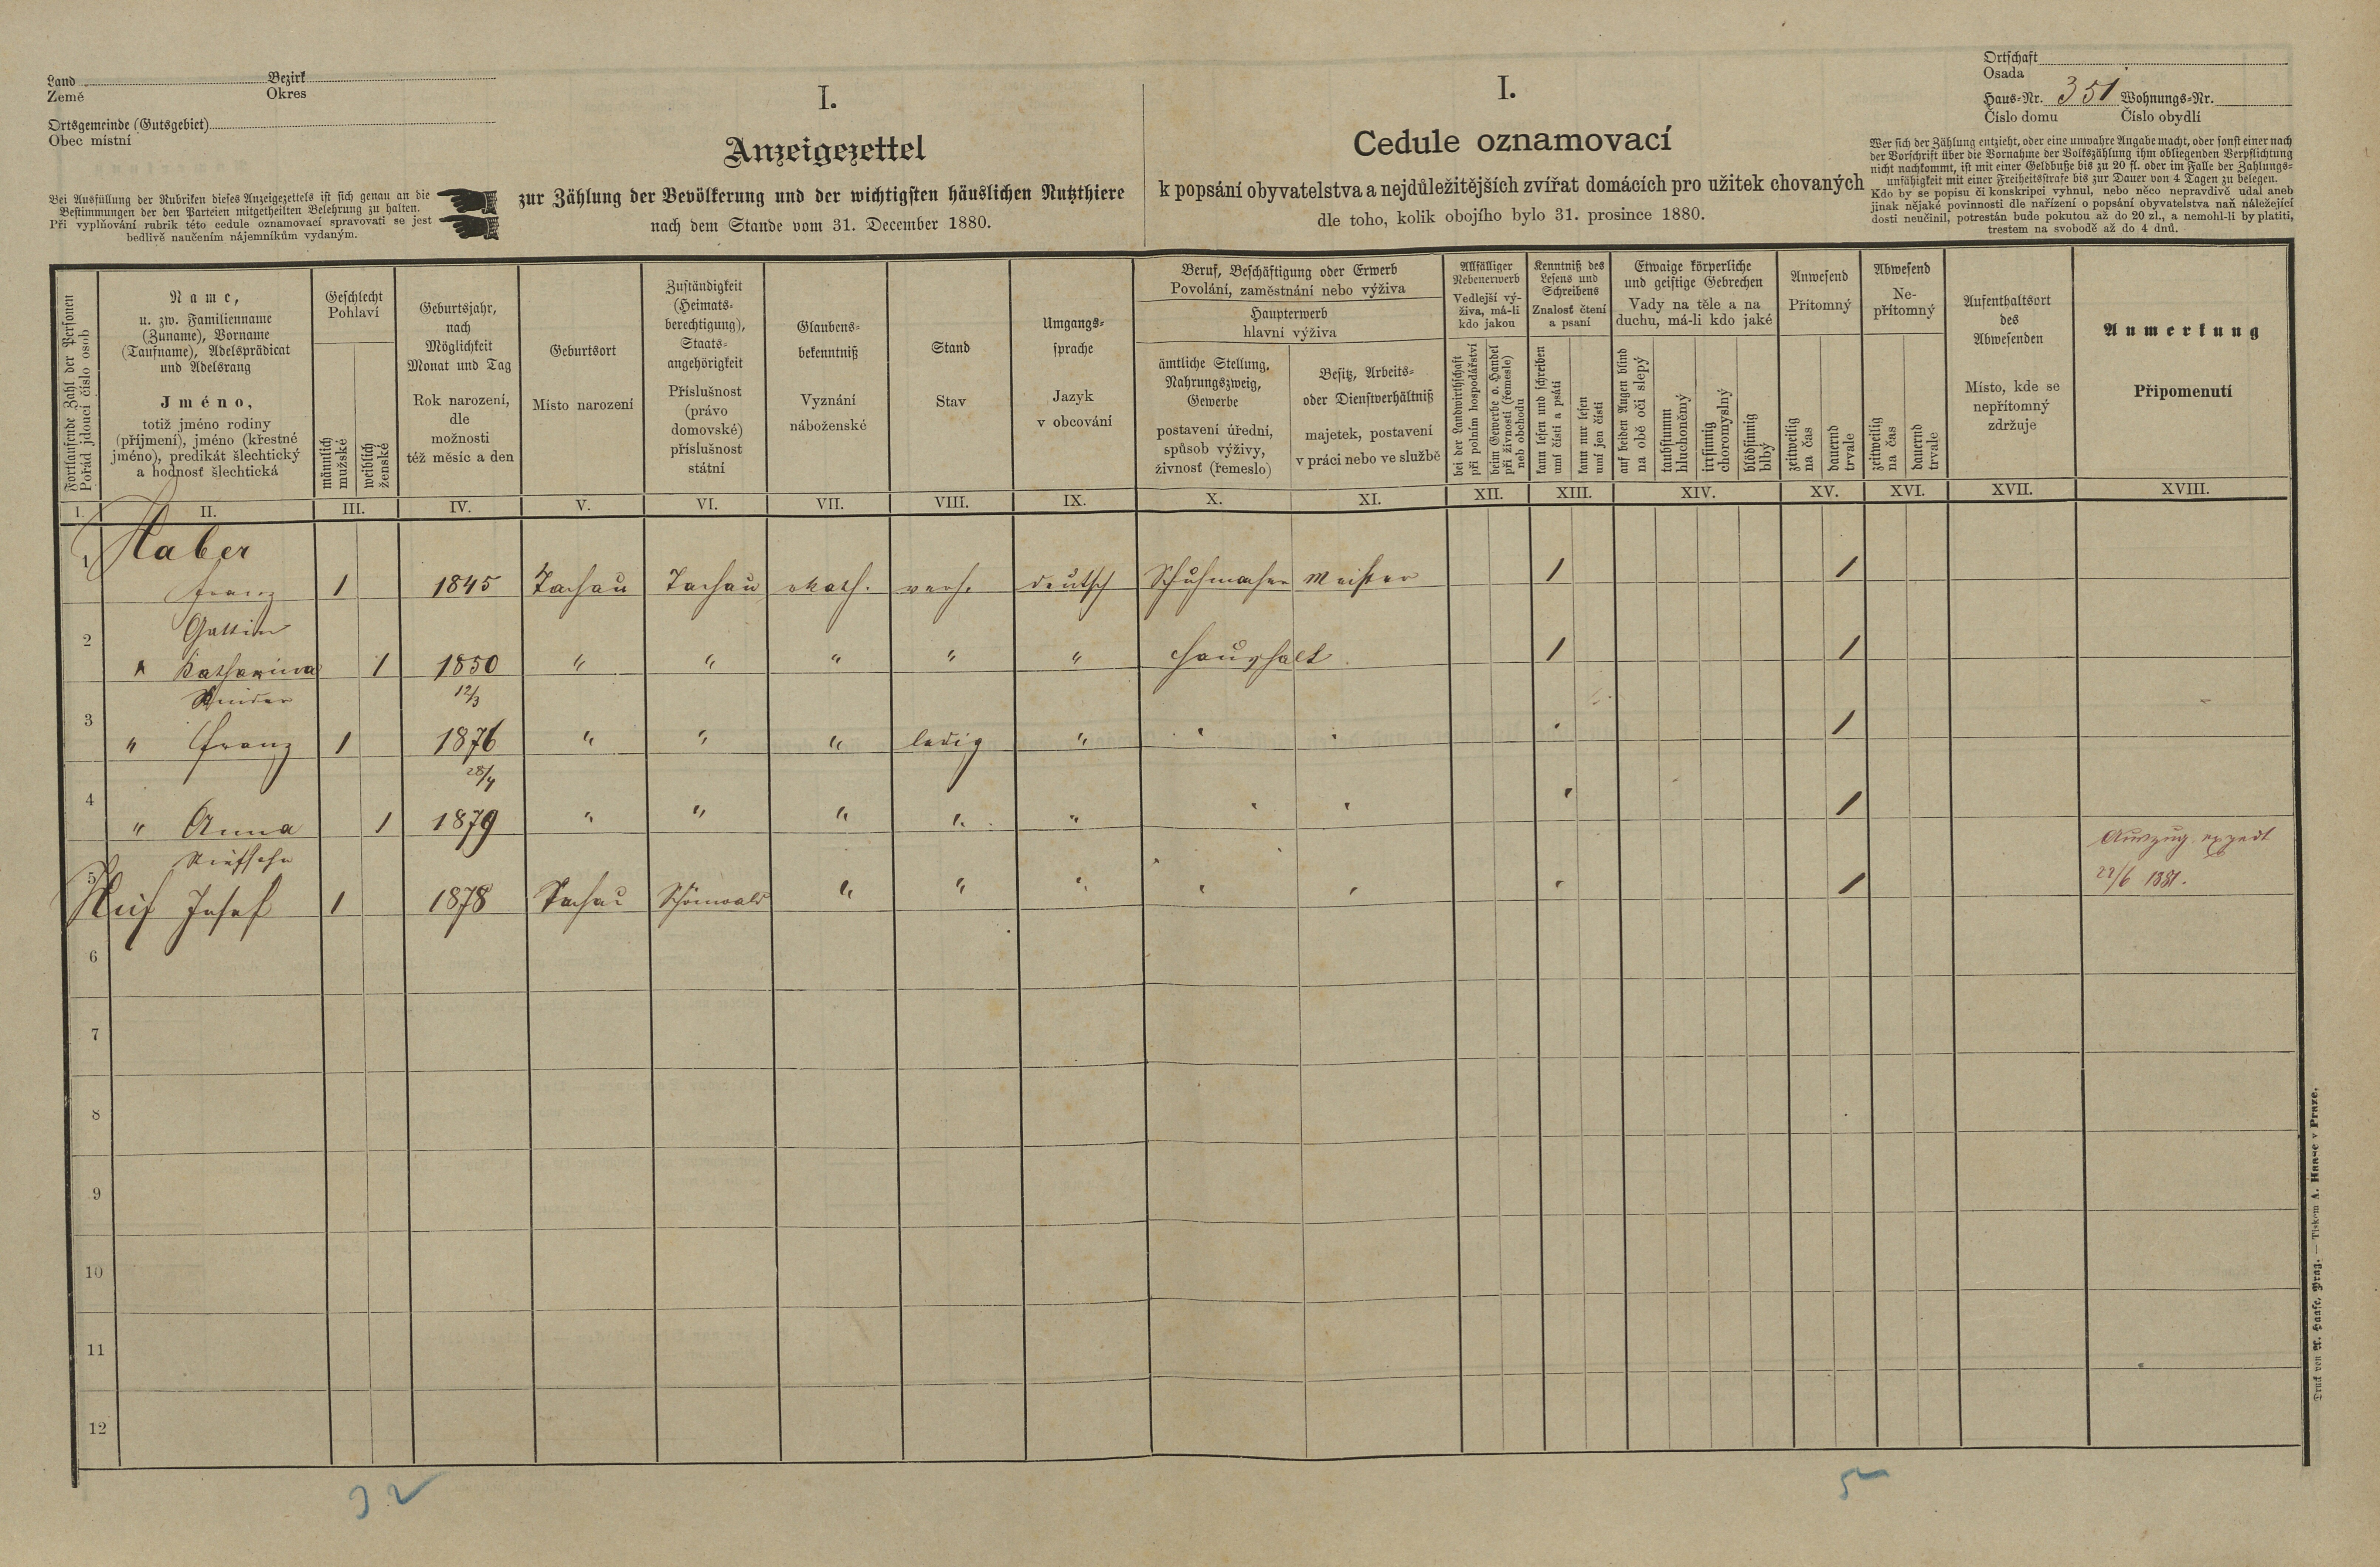 Land Bezirk
Země Okres
Ortsgemeinde (Gutsgebiet)
Obec místní
Bei Ausfüllung der Rubriken dieses Anzeigezettels ist sich genau an die
Bestimmungen der den Parteien mitgetheilten Belehrung zu halten.
Při vyplňování rubrik této cedule oznamovací spravovati se jest
bedlivě naučením nájemníkům vydaným.
I.
Anzeigezettel
zur Zählung der Bevölkerung und der wichtigsten häuslichen Nutzthiere
nach dem Stande vom 31. December 1880.
I.
Cedule oznamovací
k popsání obyvatelstva a nejdůležitějších zvířat domácích pro užitek chovaných
dle toho, kolik obojího bylo 31. prosince 1880.
Ortschaft
Osada
Haus-Nr. 351 Wohnungs-Nr.
Číslo domu Číslo obydlí
Wer sich der Zählung entzieht, oder eine unwahre Angabe macht, oder sonst einer nach
der Vorschrift über die Vornahme der Volkszählung ihm obliegenden Verpflichtung
nicht nachkommt, ist mit einer Geldbuße bis zu 20 fl. oder im Falle der Zahlungs-
unfähigkeit mit einer Freiheitsstrafe bis zur Dauer von 4 Tagen zu belegen.
Kdo by se popisu či konskripci vyhnul, nebo něco nepravdivě udal aneb
jinak nějaké povinnosti dle nařízení o popsání obyvatelstva naň náležející
dosti neučinil, potrestán bude pokutou až do 20 zl., a nemohl-li by platiti,
trestem na svobodě až do 4 dnů.
Fortlaufende Zahl der Personen
Pořád jdoucí číslo osob
Name,
u. zw. Familienname
(Zuname), Vorname
(Taufname), Adelsprädicat
und Adelsrang
Jméno,
totiž jméno rodiny
(příjmení), jméno (křestné
jméno), predikát šlechtický
a hodnosť šlechtická
Geschlecht
Pohlaví
männlich
mužské
weiblich
ženské
Geburtsjahr,
nach
Möglichkeit
Monat und Tag
Rok narození,
dle
možnosti
též měsíc a den
Geburtsort
Místo narození
Zuständigkeit
(Heimats-
berechtigung),
Staats-
angehörigkeit
Příslušnost
(právo
domovské)
příslušnost
státní
Glaubens-
bekenntniß
Vyznání
náboženské
Stand
Stav
Umgangs-
sprache
Jazyk
v obcování
Beruf, Beschäftigung oder Erwerb
Povolání, zaměstnání nebo výživa
Haupterwerb
hlavní výživa
ämtliche Stellung,
Nahrungszweig,
Gewerbe
postavení úřední,
spůsob výživy,
živnosť (řemeslo)
Besitz, Arbeits-
oder Dienstverhältniß
majetek, postavení
v práci nebo ve službě
Allfälliger
Nebenerwerb
Vedlejší vý-
živa, má-li
kdo jakou
bei der Landwirthschaft
při polním hospodářství
beim Gewerbe o. Handel
při živnosti (řemesle)
neb obchodu
Kenntniß des
Lesens und
Schreibens
Znalosť čtení
a psaní
kann lesen und schreiben
umí čísti a psáti
kann nur lesen
umí jen čísti
Etwaige körperliche
und geistige Gebrechen
Vady na těle a na
duchu, má-li kdo jaké
auf beiden Augen blind
na obě oči slepý
taubstumm
hluchoněmý
irrsinnig
choromyslný
blödsinnig
blbý
Anwesend
Přítomný
zeitweilig
na čas
dauernd
trvale
Abwesend
Ne-
přítomný
zeitweilig
na čas
dauernd
trvale
Aufenthaltsort
des
Abwesenden
Místo, kde se
nepřítomný
zdržuje
Anmerkung
Připomenutí
I. II. III. IV. V. VI. VII. VIII. IX. X. XI. XII. XIII. XIV. XV. XVI. XVII. XVIII.
1 Haber
Franz 1 1845 Tachau Tachau kath. verh. deutsch Schuhmacher Meister 1 1
Gattin
2 " Katharina 1 1850 " " " " " Haushalt 1 1
Kinder 12/3
3 " Franz 1 1876 " " " ledig " " " " 1
28/4
4 " Anna 1 1879 " " " " " " " " 1
Stiefsohn Auszug exped
5 Josef 1 1878 Tachau Schönwald " " " " " " 1 22/6 1881.
6
7
8
9
10
11
12
32 5
Druck von A. Haase, Prag. — Tiskem A. Haase v Praze.